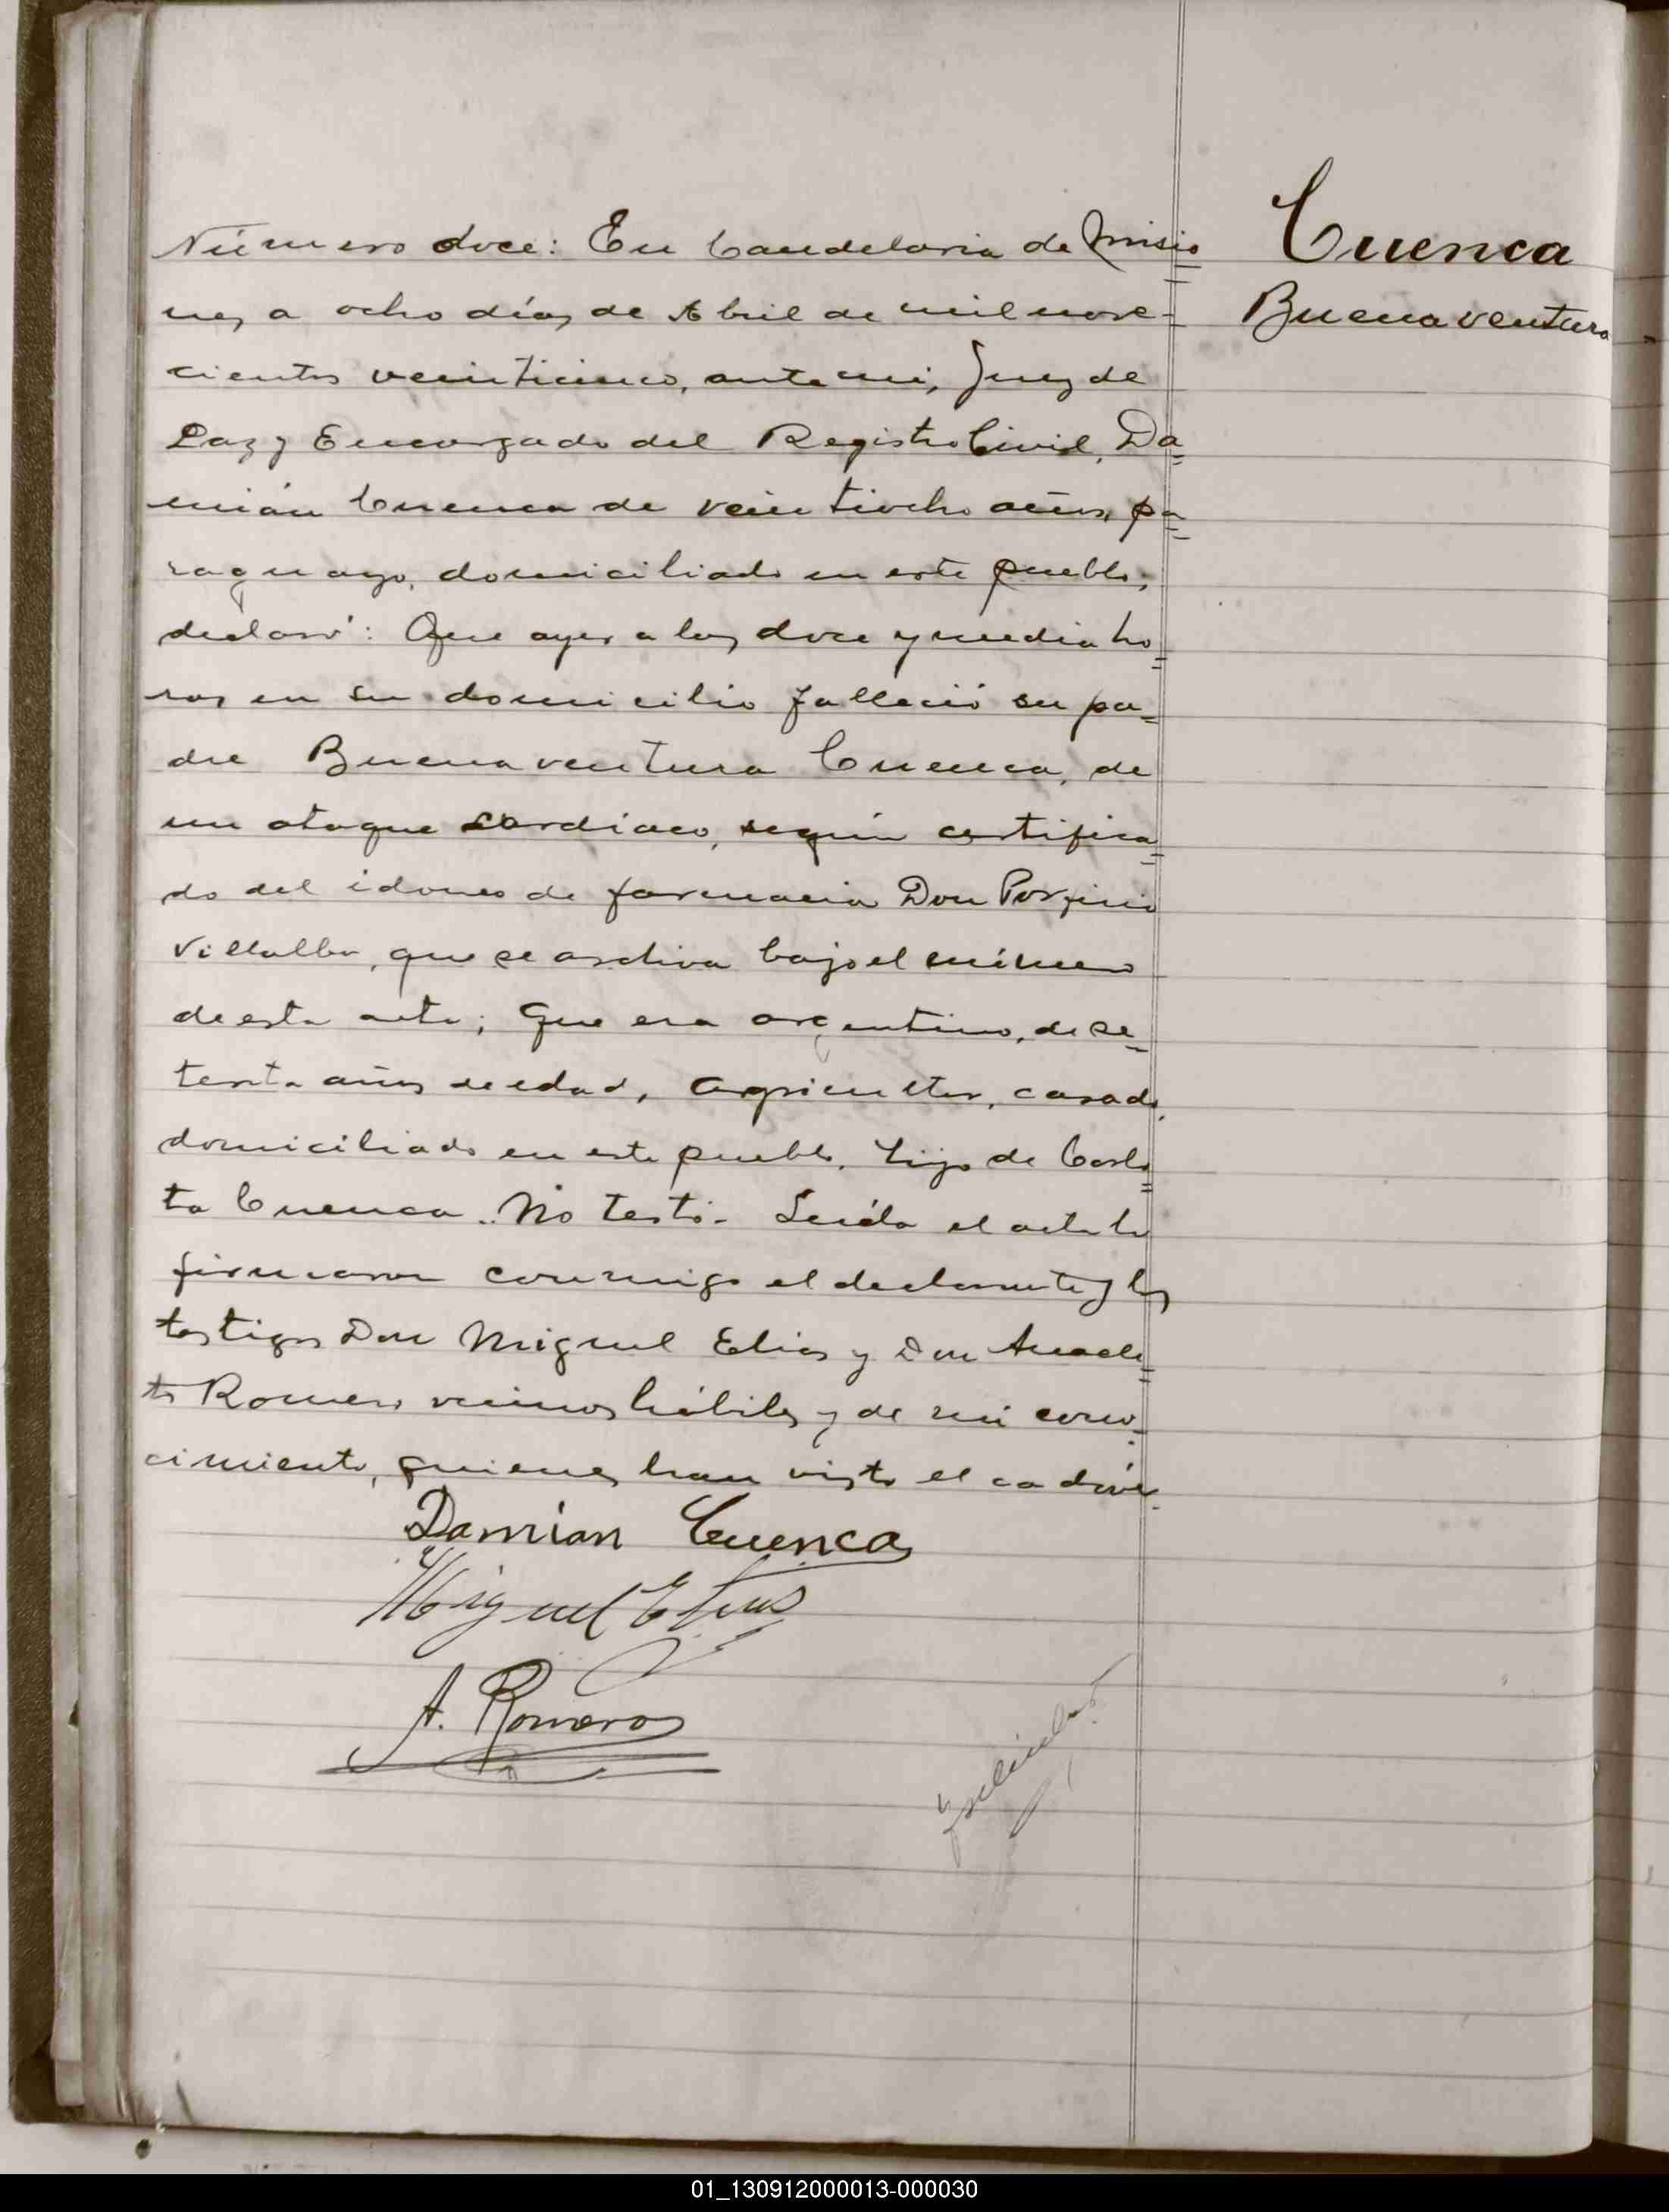 Número doce: En Candelaria de Misio
nes, a ocho días de Abril de mil nove-
cientos veinticinco, ante mi, Juez de
Paz y Encargado del Registro Civil, Da=
mián Cuenca de veintiocho años, pa=
raguayo, domiciliado en este pueblo,
declaró: Que ayer a las doce y media ho=
ras en su domicilio falleció su pa=
dre Buenaventura Cuenca, de
un ataque cardíaco, según certifica=
do del idoneo de farmacia Don Porfirio
Villalba, que se archiva bajo el número
de esta acta; Que era argentino, de se=
tenta años de edad, agricultor, casado,
domiciliado en este pueblo, hijo de Carlo=
ta Cuenca. No testó.- Leída el acta la
firmaron conmigo el declarante y los
testigos Don Miguel Elias y Don Anacle=
to Romero vecinos hábiles y de mi cono=
cimiento, quienes han visto el cadáver.
Damián Cuenca
Miguel Elias
A. Romero
Cuenca
Buenaventura
01_130912000013-000030